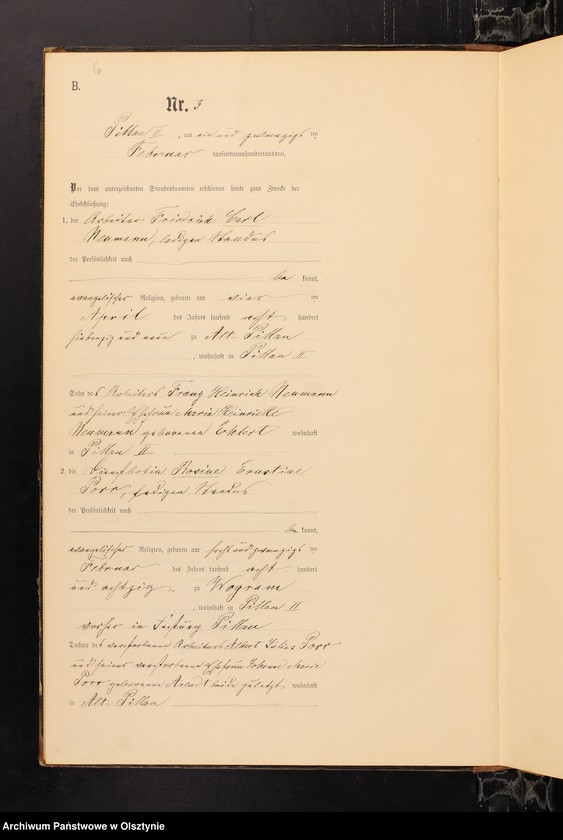 6
B.
Nr. 3
Pillau II, am ein und zwanzigsten
Februar tausendneunhundertunddrei.
Vor dem unterzeichneten Standesbeamten erschienen heute zum Zwecke der
Eheschließung:
1. der Arbeiter Friedrich Carl
Neumann, ledigen Standes
der Persönlichkeit nach
be kannt,
evangelischer Religion, geboren am vier ten
April des Jahres tausend acht hundert
siebenzig und neun zu Alt Pillau
, wohnhaft in Pillau II
Sohn des Arbeiters Franz Heinrich Neumann
und seiner Ehefrau Maria Heinriette
Neumann geborenen wohnhaft
in Pillau II
2. die Dienstbotin Rosine Ernstine
Porr, ledigen Standes
der Persönlichkeit nach
be kannt,
evangelischer Religion, geboren am sechs und zwanzigs ten
Februar des Jahres tausend acht hundert
und achtzig zu Wogram
, wohnhaft in Pillau II
vorher in Festung Pillau
Tochter des verstorbenen Arbeiters Albert Julius Porr
und seiner verstorbenen Ehefrau Johanne Marie
Porr geborenen beide zuletzt wohnhaft
in Alt Pillau
Archiwum Państwowe w Olsztynie